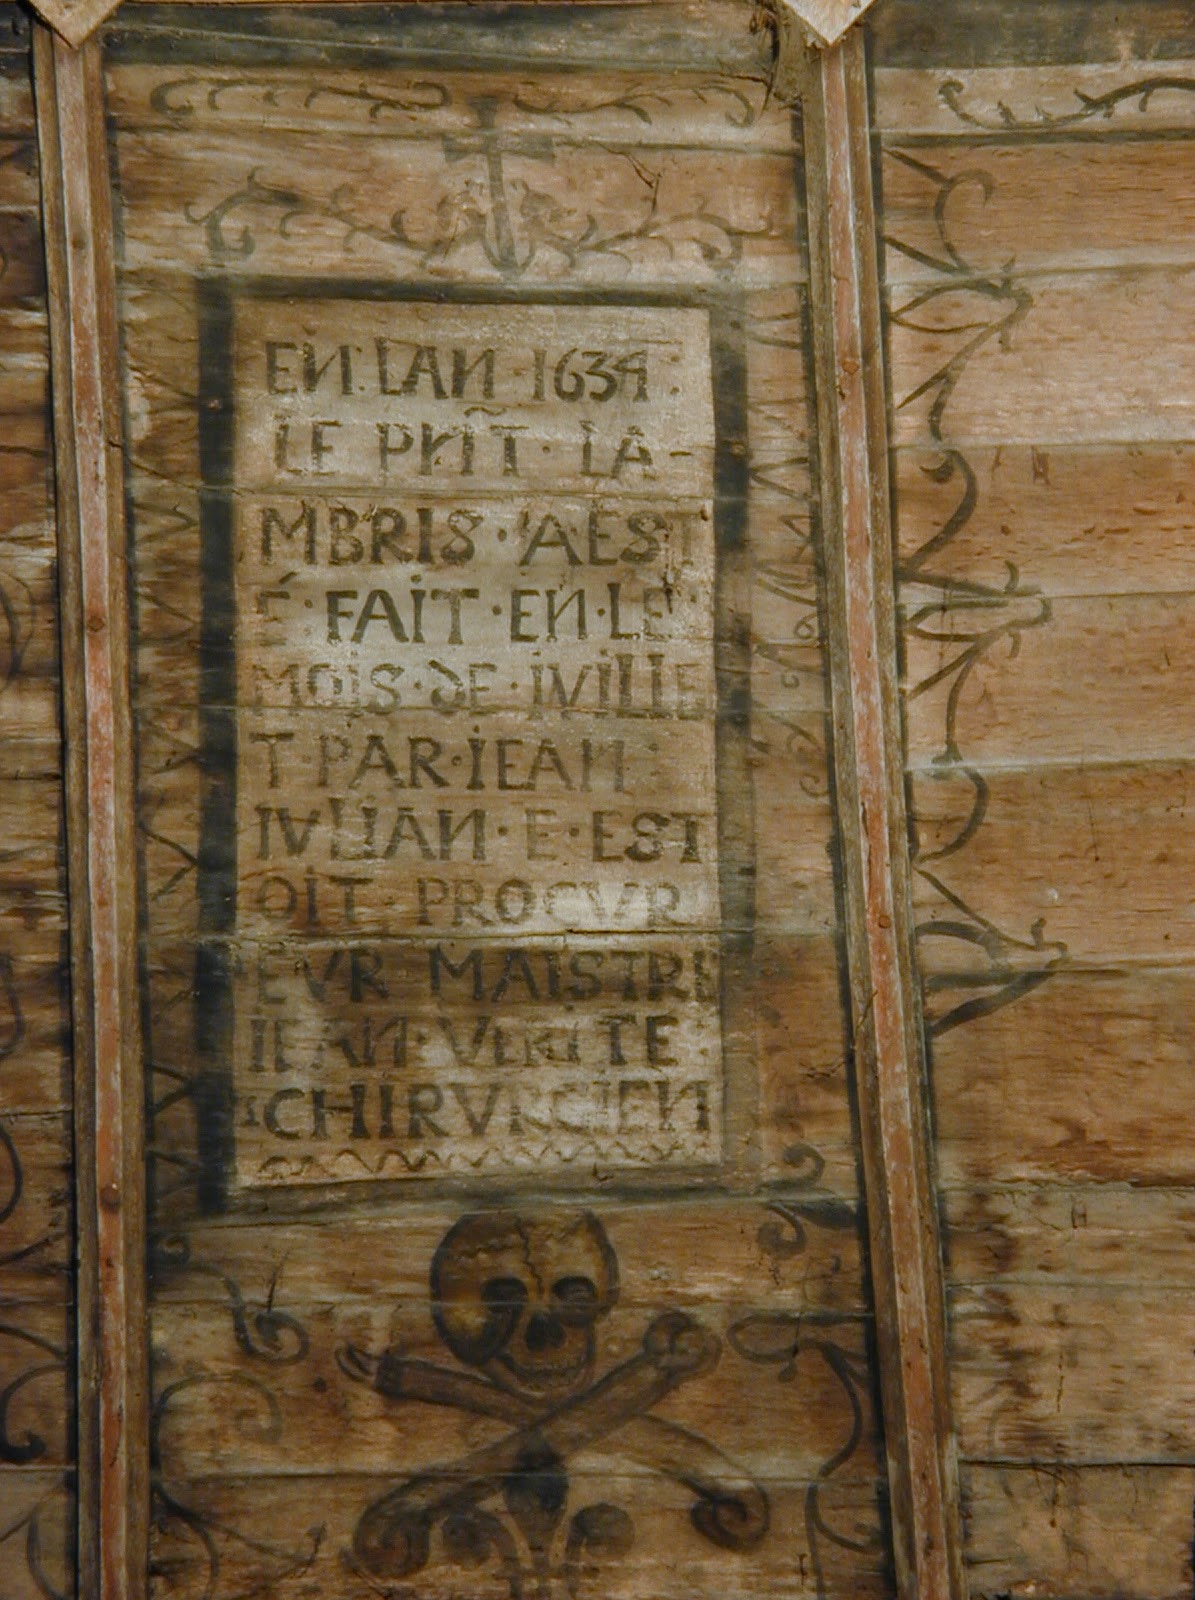 EN·LAN·1634·
LE PÑT·LA-
MBRIS·A EST
É·FAIT·EN·LE
MOIS·DE·IVILLE
T·PAR·IEAN
IVLIAN·E·EST
OIT·PROCVR
EVR MAISTRE
IEAN·VERITE·
CHIRVRGIEN